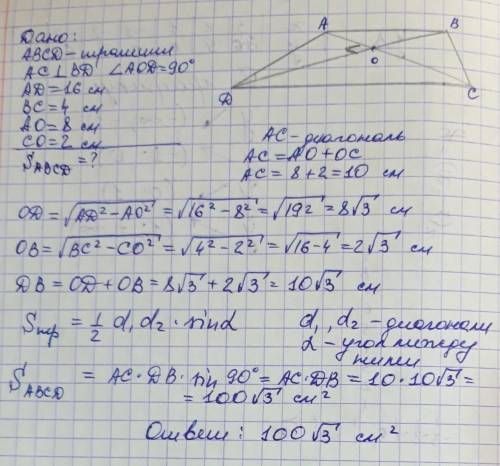 Дано:
ABCD – трапеция
AC ⊥ BD ∠AOD = 90°
AD = 16 см
BC = 4 см
AO = 8 см
CO = 2 см
S ABCD = ?
A
B
O
D
C
AC – диагональ
AC = AO + OC
AC = 8 + 2 = 10 см
OD = √AD² – AO² = √16² – 8² = √192 = 8√3 см
OB = √BC² – CO² = √4² – 2² = √16 – 4 = 2√3 см
DB = OD + OB = 8√3 + 2√3 = 10√3 см
Sтр = 1/2 d₁ d₂ · sinα
d₁, d₂ – диагонали
α – угол между
ними
S ABCD = AC · DB · sin 90° = AC · DB = 10 · 10√3 =
= 100√3 см²
Ответ: 100√3 см²